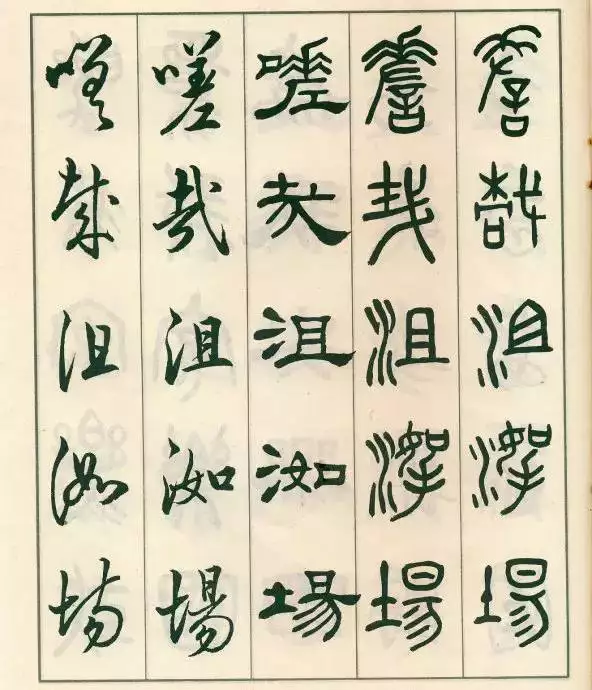 嗟哉沮洳場
嗟哉沮洳場
嗟哉沮洳場
嗟哉沮洳場
嗟哉沮洳場